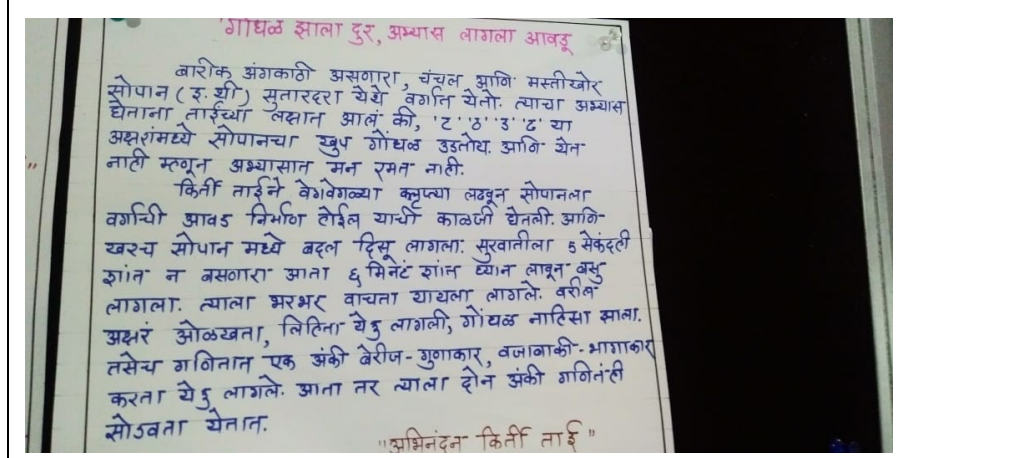 "गोंधळ झाला दुर, अभ्यास लागला आवडू
बारीक अंगकाठी असणारा, चंचल आणि मस्तीखोर
सोपान (इ. थी) सुतारदरा येथे वर्गात येतो. त्याचा अभ्यास
घेताना ताईच्या लक्षात आलं की, 'ट' 'ठ' 'उ' 'ढ' या
अक्षरांमध्ये सोपानचा खुप गोंधळ उडतोय. आणि येत
नाही म्हणून अभ्यासात मन रमत नाही.
किर्ती ताईने वेगवेगळ्या क्लृप्त्या लढवून सोपानला
वर्गाची आवड निर्माण होईल याची काळजी घेतली. आणि
खरच सोपान मध्ये बदल दिसू लागला. सुरवातीला 5 सेकंदही
शांत न बसणारा आता ६ मिनटं शांत ध्यान लावून बसु
लागला. त्याला भरभर वाचता यायला लागले. वरील
अक्षरं ओळखता, लिहिता येऊ लागली, गोंधळ नाहिसा झाला.
तसेच गनितात एक अंकी बेरीज-गुणाकार, वजाबाकी-भागाकार
करता येऊ लागले. आता तर त्याला दोन अंकी गनितंही
सोडवता येतात.
"अभिनंदन किर्ती ताई"